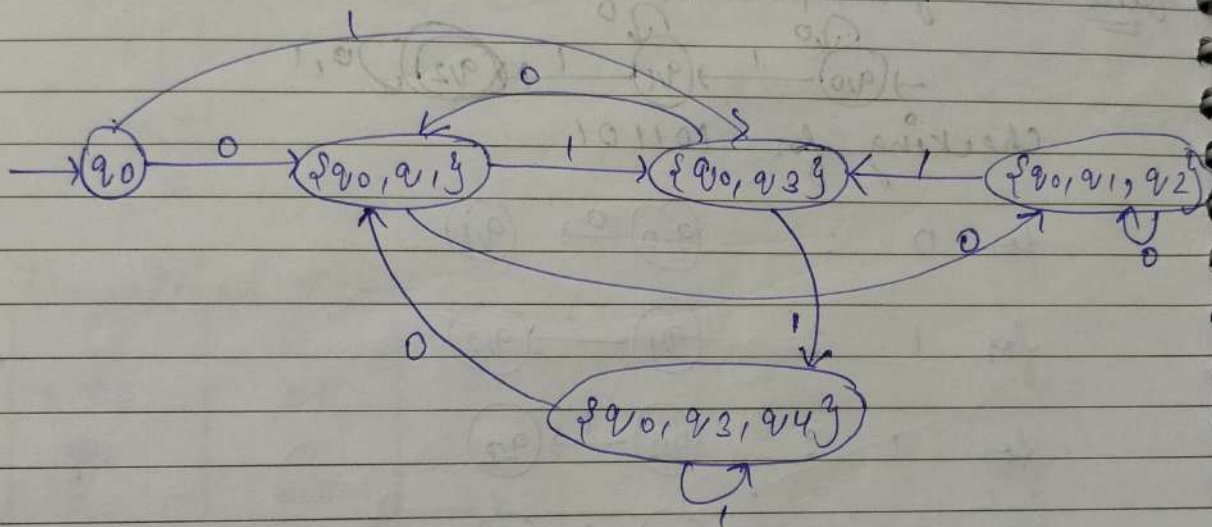 1
0
q0 0 {q0, q1} 1 {q0, q3} 1 {q0, q1, q2}
0 0
1
0
{q0, q3, q4}
1